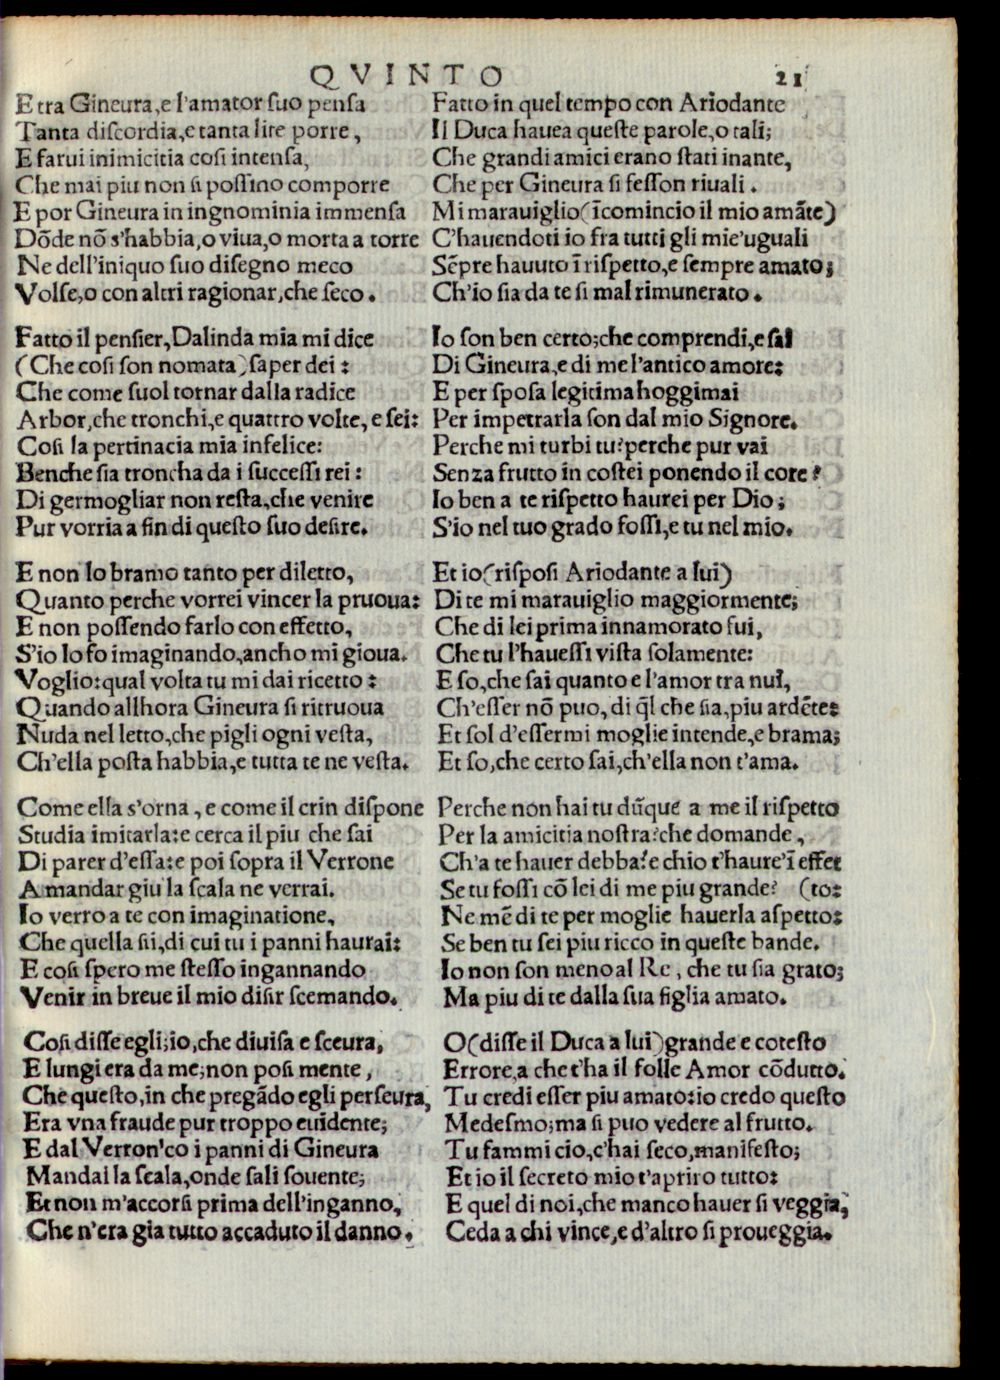 QVINTO 21
E tra Gineura, e l'amator suo pensa
Tanta discordia, e tanta lite porre,
E farui inimicitia cosi intensa,
Che mai piu non si possino comporre
E por Gineura in ingnominia immensa
Dōde nō s'habbia, o viua, o morta a torre
Ne dell'iniquo suo disegno meco
Volse, o con altri ragionar, che seco.

Fatto il pensier, Dalinda mia mi dice
(Che cosi son nomata) saper dei:
Che come suol tornar dalla radice
Arbor, che tronchi, e quattro volte, e sei:
Cosi la pertinacia mia infelice:
Benche sia troncha da i successi rei:
Di germogliar non resta, che venire
Pur vorria a fin di questo suo desire.

E non lo bramo tanto per diletto,
Quanto perche vorrei vincer la pruoua:
E non possendo farlo con effetto,
S'io lo fo imaginando, ancho mi gioua.
Voglio: qual volta tu mi dai ricetto:
Quando allhora Gineura si ritruoua
Nuda nel letto, che pigli ogni vesta,
Ch'ella posta habbia, e tutta te ne vesta.

Come ella s'orna, e come il crin dispone
Studia imitarla: e cerca il piu che sai
Di parer d'essa: e poi sopra il Verrone
A mandar giu la scala ne verrai.
Io verro a te con imaginatione,
Che quella sii, di cui tu i panni haurai:
E cosi spero me stesso ingannando
Venir in breue il mio disir scemando.

Cosi disse egli; io, che diuisa e sceura,
E lungi era da me; non posi mente,
Che questo, in che pregādo egli perseura,
Era vna fraude pur troppo euidente;
E dal Verron'co i panni di Gineura
Mandai la scala, onde sali souente;
Et non m'accorsi prima dell'inganno,
Che n'era gia tutto accaduto il danno.

Fatto in quel tempo con Ariodante
Il Duca hauea queste parole, o tali;
Che grandi amici erano stati inante,
Che per Gineura si fesson riuali.
Mi marauiglio (īcomincio il mio amāte)
C'hauendoti io fra tutti gli mie'uguali
Sēpre hauuto ī rispetto, e sempre amato;
Ch'io sia da te si mal rimunerato.

Io son ben certo; che comprendi, e sai
Di Gineura, e di me l'antico amore:
E per sposa legitima hoggimai
Per impetrarla son dal mio Signore.
Perche mi turbi tu? perche pur vai
Senza frutto in costei ponendo il core?
Io ben a te rispetto haurei per Dio;
S'io nel tuo grado fossi, e tu nel mio.

Et io (risposi Ariodante a lui)
Di te mi marauiglio maggiormente;
Che di lei prima innamorato fui,
Che tu l'hauessi vista solamente:
E so, che sai quanto e l'amor tra nui,
Ch'esser nō puo, di q̄l che sia, piu ardēte:
Et sol d'essermi moglie intende, e brama;
Et so, che certo sai, ch'ella non t'ama.

Perche non hai tu dūque a me il rispetto
Per la amicitia nostra? che domande,
Ch'a te hauer debba? e chio t'haure'ī effet
Se tu fossi cō lei di me piu grande? (to:
Ne mē di te per moglie hauerla aspetto:
Se ben tu sei piu ricco in queste bande.
Io non son meno al Re, che tu sia grato;
Ma piu di te dalla sua figlia amato.

O (disse il Duca a lui) grande e cotesto
Errore, a che t'ha il folle Amor cōdutto.
Tu credi esser piu amato: io credo questo
Medesmo; ma si puo vedere al frutto.
Tu fammi cio, c'hai seco, manifesto;
Et io il secreto mio t'apriro tutto:
E quel di noi, che manco hauer si veggia,
Ceda a chi vince, e d'altro si proueggia.